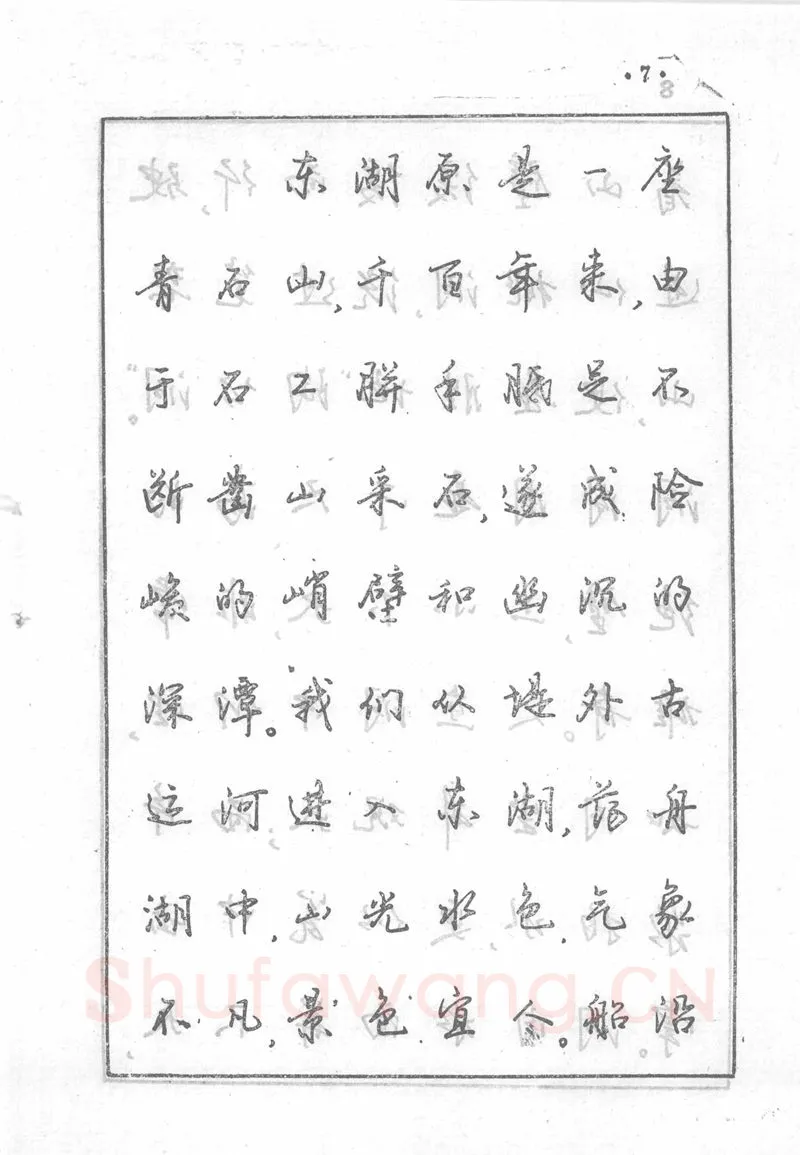 ·7·
东湖原是一座
青石山，千百年来，由
于石工胼手胝足不
断凿山采石，遂成险
峻的峭壁和幽沉的
深潭。我们从堤外古
运河进入东湖，荡舟
湖中，山光水色，气象
不凡，景色宜人。船沿
Shufawang.CN